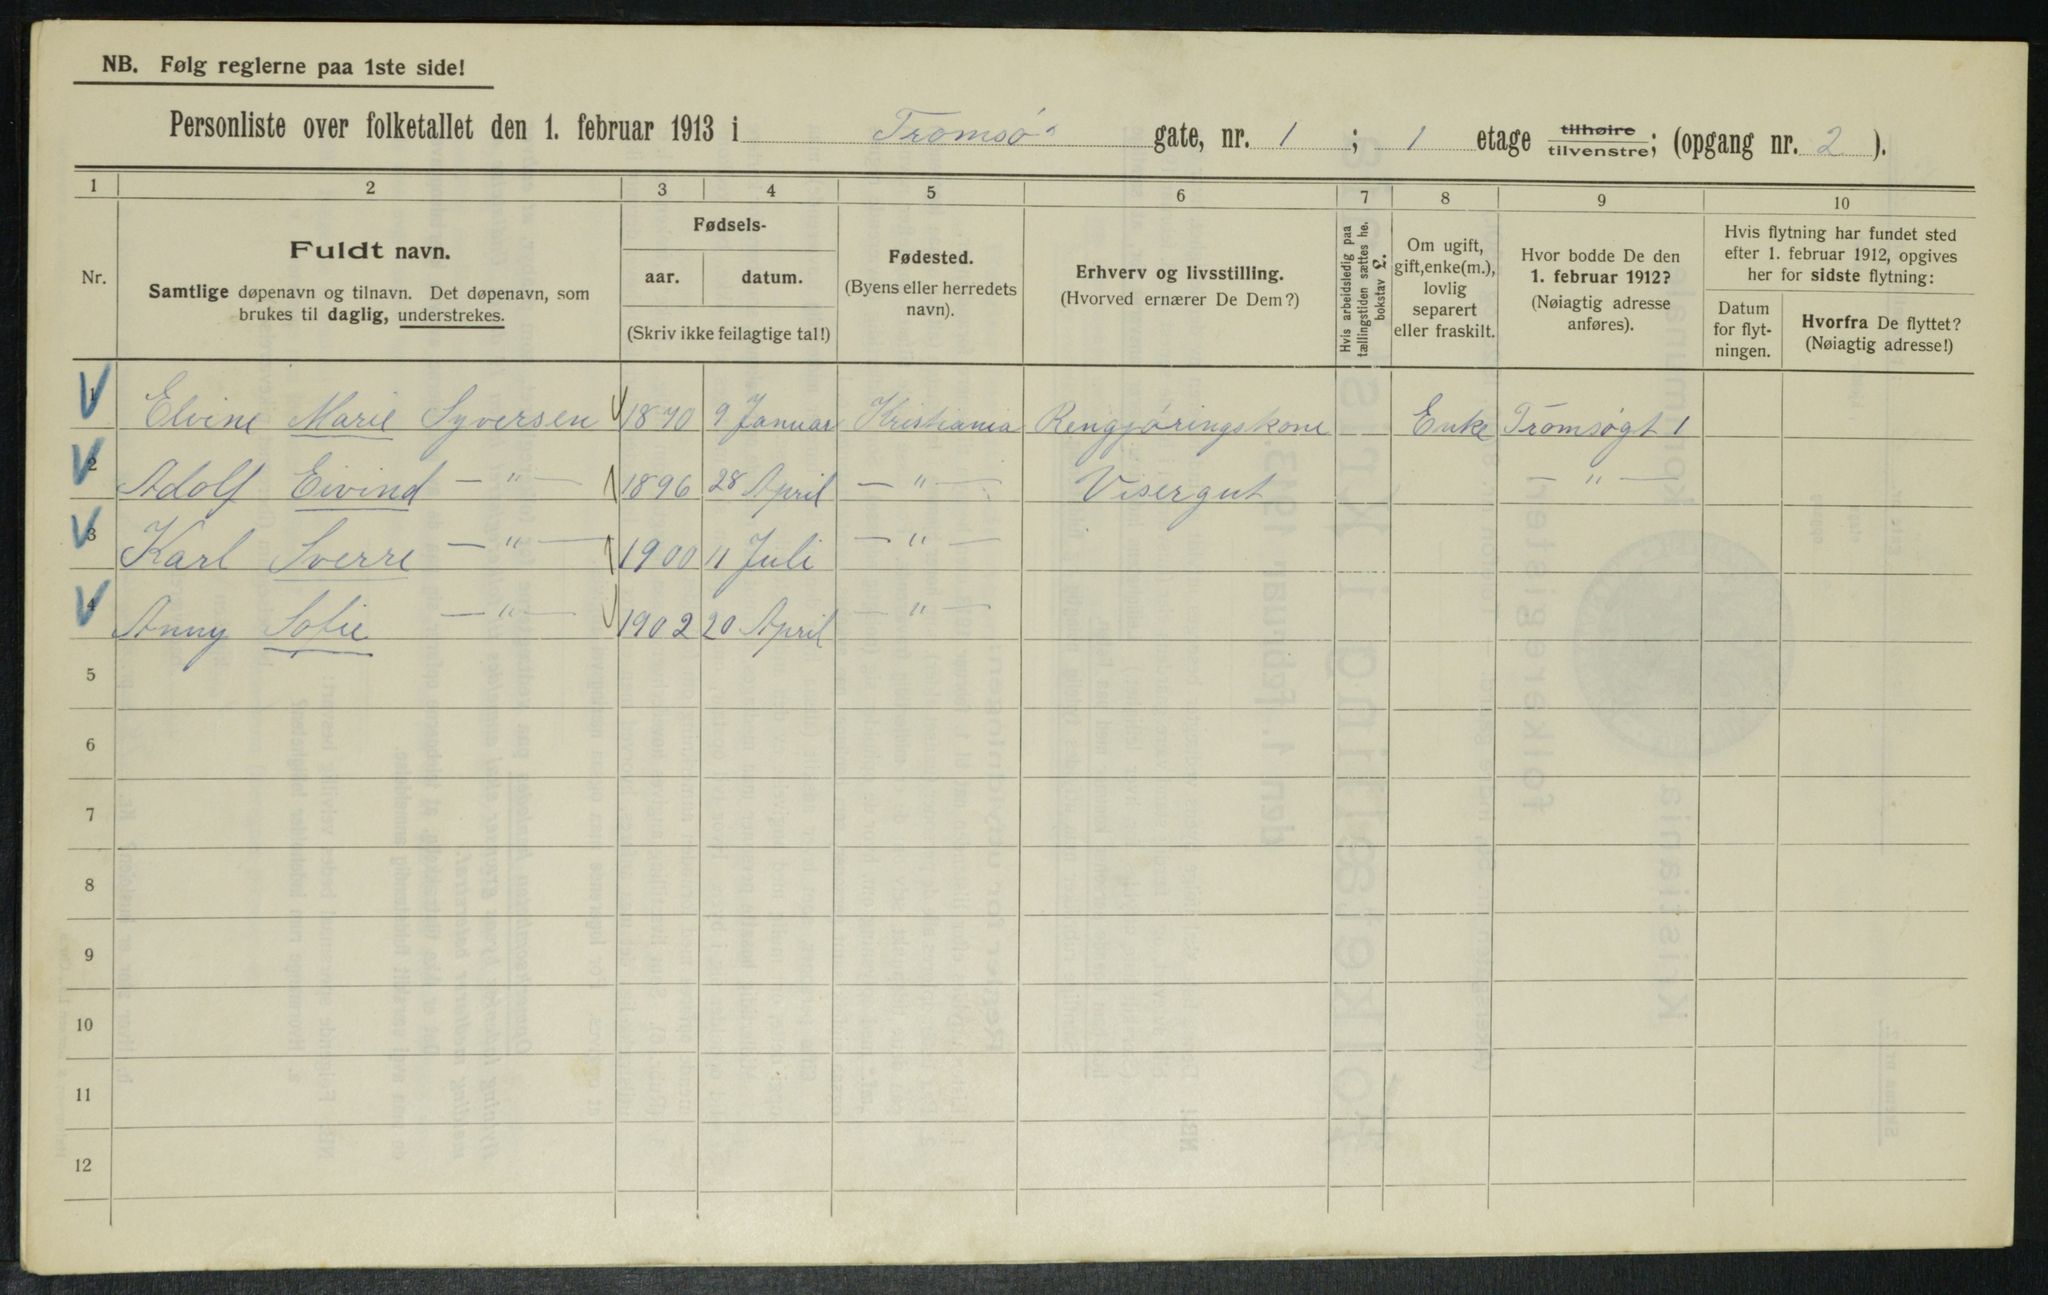 NB. Følg reglerne paa 1ste side!
Personliste over folketallet den 1. februar 1913 i Tromsø gate, nr. 1 ; 1 etage tilhøire tilvenstre; (opgang nr. 2 ).
1 2 3 4 5 6 7 8 9 10
Nr.
Fuldt navn.
Samtlige døpenavn og tilnavn. Det døpenavn, som
brukes til daglig, understrekes.
Fødsels-
aar. datum.
(Skriv ikke feilagtige tal!)
Fødested.
(Byens eller herredets
navn).
Erhverv og livsstilling.
(Hvorved ernærer De Dem?)
Hvis arbeidsledig paa
tællingstiden sættes he.
bokstav £.
Om ugift,
gift, enke(m.),
lovlig
separert
eller fraskilt.
Hvor bodde De den
1. februar 1912?
(Nøiagtig adresse
anføres).
Hvis flytning har fundet sted
efter 1. februar 1912, opgives
her for sidste flytning:
Datum
for flyt-
ningen.
Hvorfra De flyttet?
(Nøiagtig adresse!)
1 Elvine Marie Syversen 1870 9 Januar Kristiania Rengjøringskone Enke Tromsøgt 1
2 Adolf Eivind — " — 1896 28 April — " — Visergut — " —
3 Karl Sverre — " — 1900 11 Juli — " —
4 Anny Sofie — " — 1902 20 April — " —
5
6
7
8
9
10
11
12